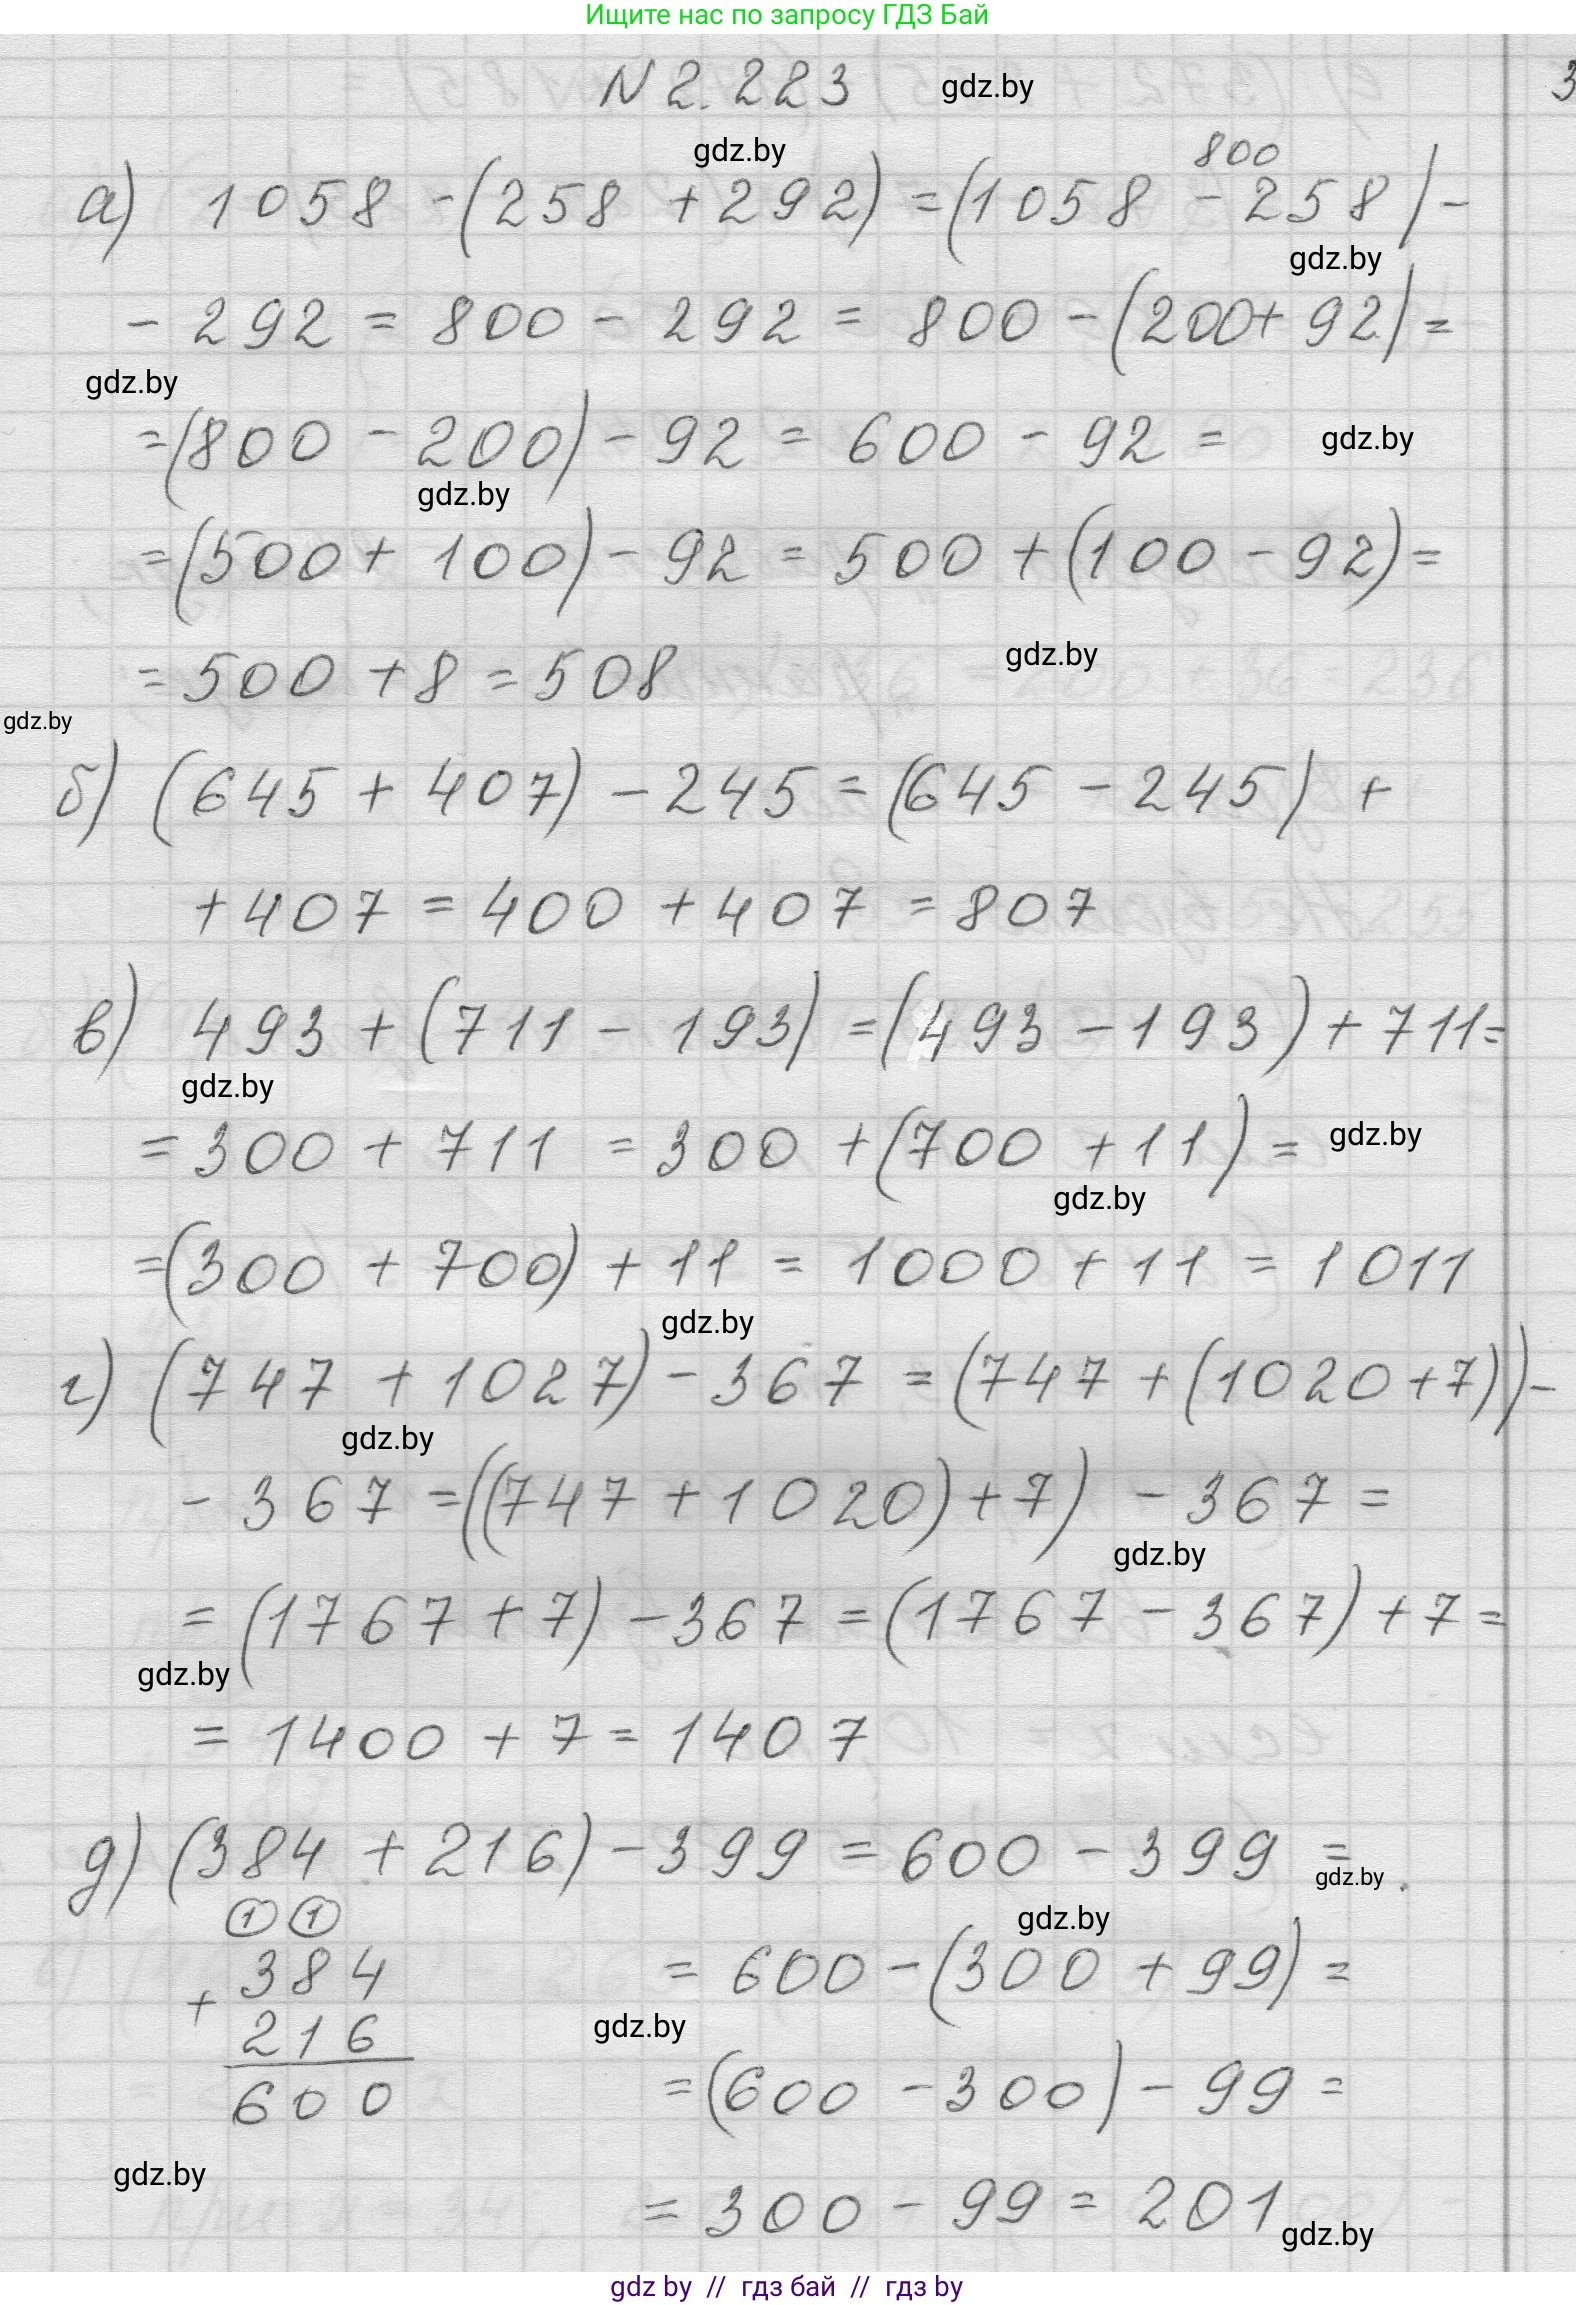 Ищите нас по запросу ГДЗ Бай
N 2.223 gdz.by 3
gdz.by 800
а) 1058 - (258 + 292) = (1058 - 258) -
gdz.by
- 292 = 800 - 292 = 800 - (200 + 92) =
gdz.by
= (800 - 200) - 92 = 600 - 92 = gdz.by
gdz.by
= (500 + 100) - 92 = 500 + (100 - 92) =
= 500 + 8 = 508 gdz.by
gdz.by
б) (645 + 407) - 245 = (645 - 245) +
+ 407 = 400 + 407 = 807
в) 493 + (711 - 193) = (493 - 193) + 711 =
gdz.by
= 300 + 711 = 300 + (700 + 11) = gdz.by
gdz.by
= (300 + 700) + 11 = 1000 + 11 = 1011
gdz.by
г) (747 + 1027) - 367 = (747 + (1020 + 7)) -
gdz.by
- 367 = ((747 + 1020) + 7) - 367 =
gdz.by
= (1767 + 7) - 367 = (1767 - 367) + 7 =
gdz.by
= 1400 + 7 = 1407
д) (384 + 216) - 399 = 600 - 399 =
gdz.by
1 1 gdz.by
384 = 600 - (300 + 99) =
+
216 gdz.by
600 = (600 - 300) - 99 =
gdz.by
= 300 - 99 = 201
gdz.by
gdz by // гдз бай // гдз by